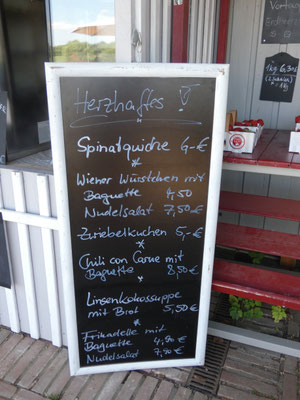 Herzhaftes !
Spinatquiche 4,-€
*
Wiener Würstchen mit
Baguette 4,50
Nudelsalat 7,50 €
Zwiebelkuchen 5,-€
*
Chili con Carne mit
Baguette 8,50 €
*
Linsenkokossuppe
mit Brot 5,50 €
*
Frikadelle mit
Baguette 4,90 €
Nudelsalat 7,90 €